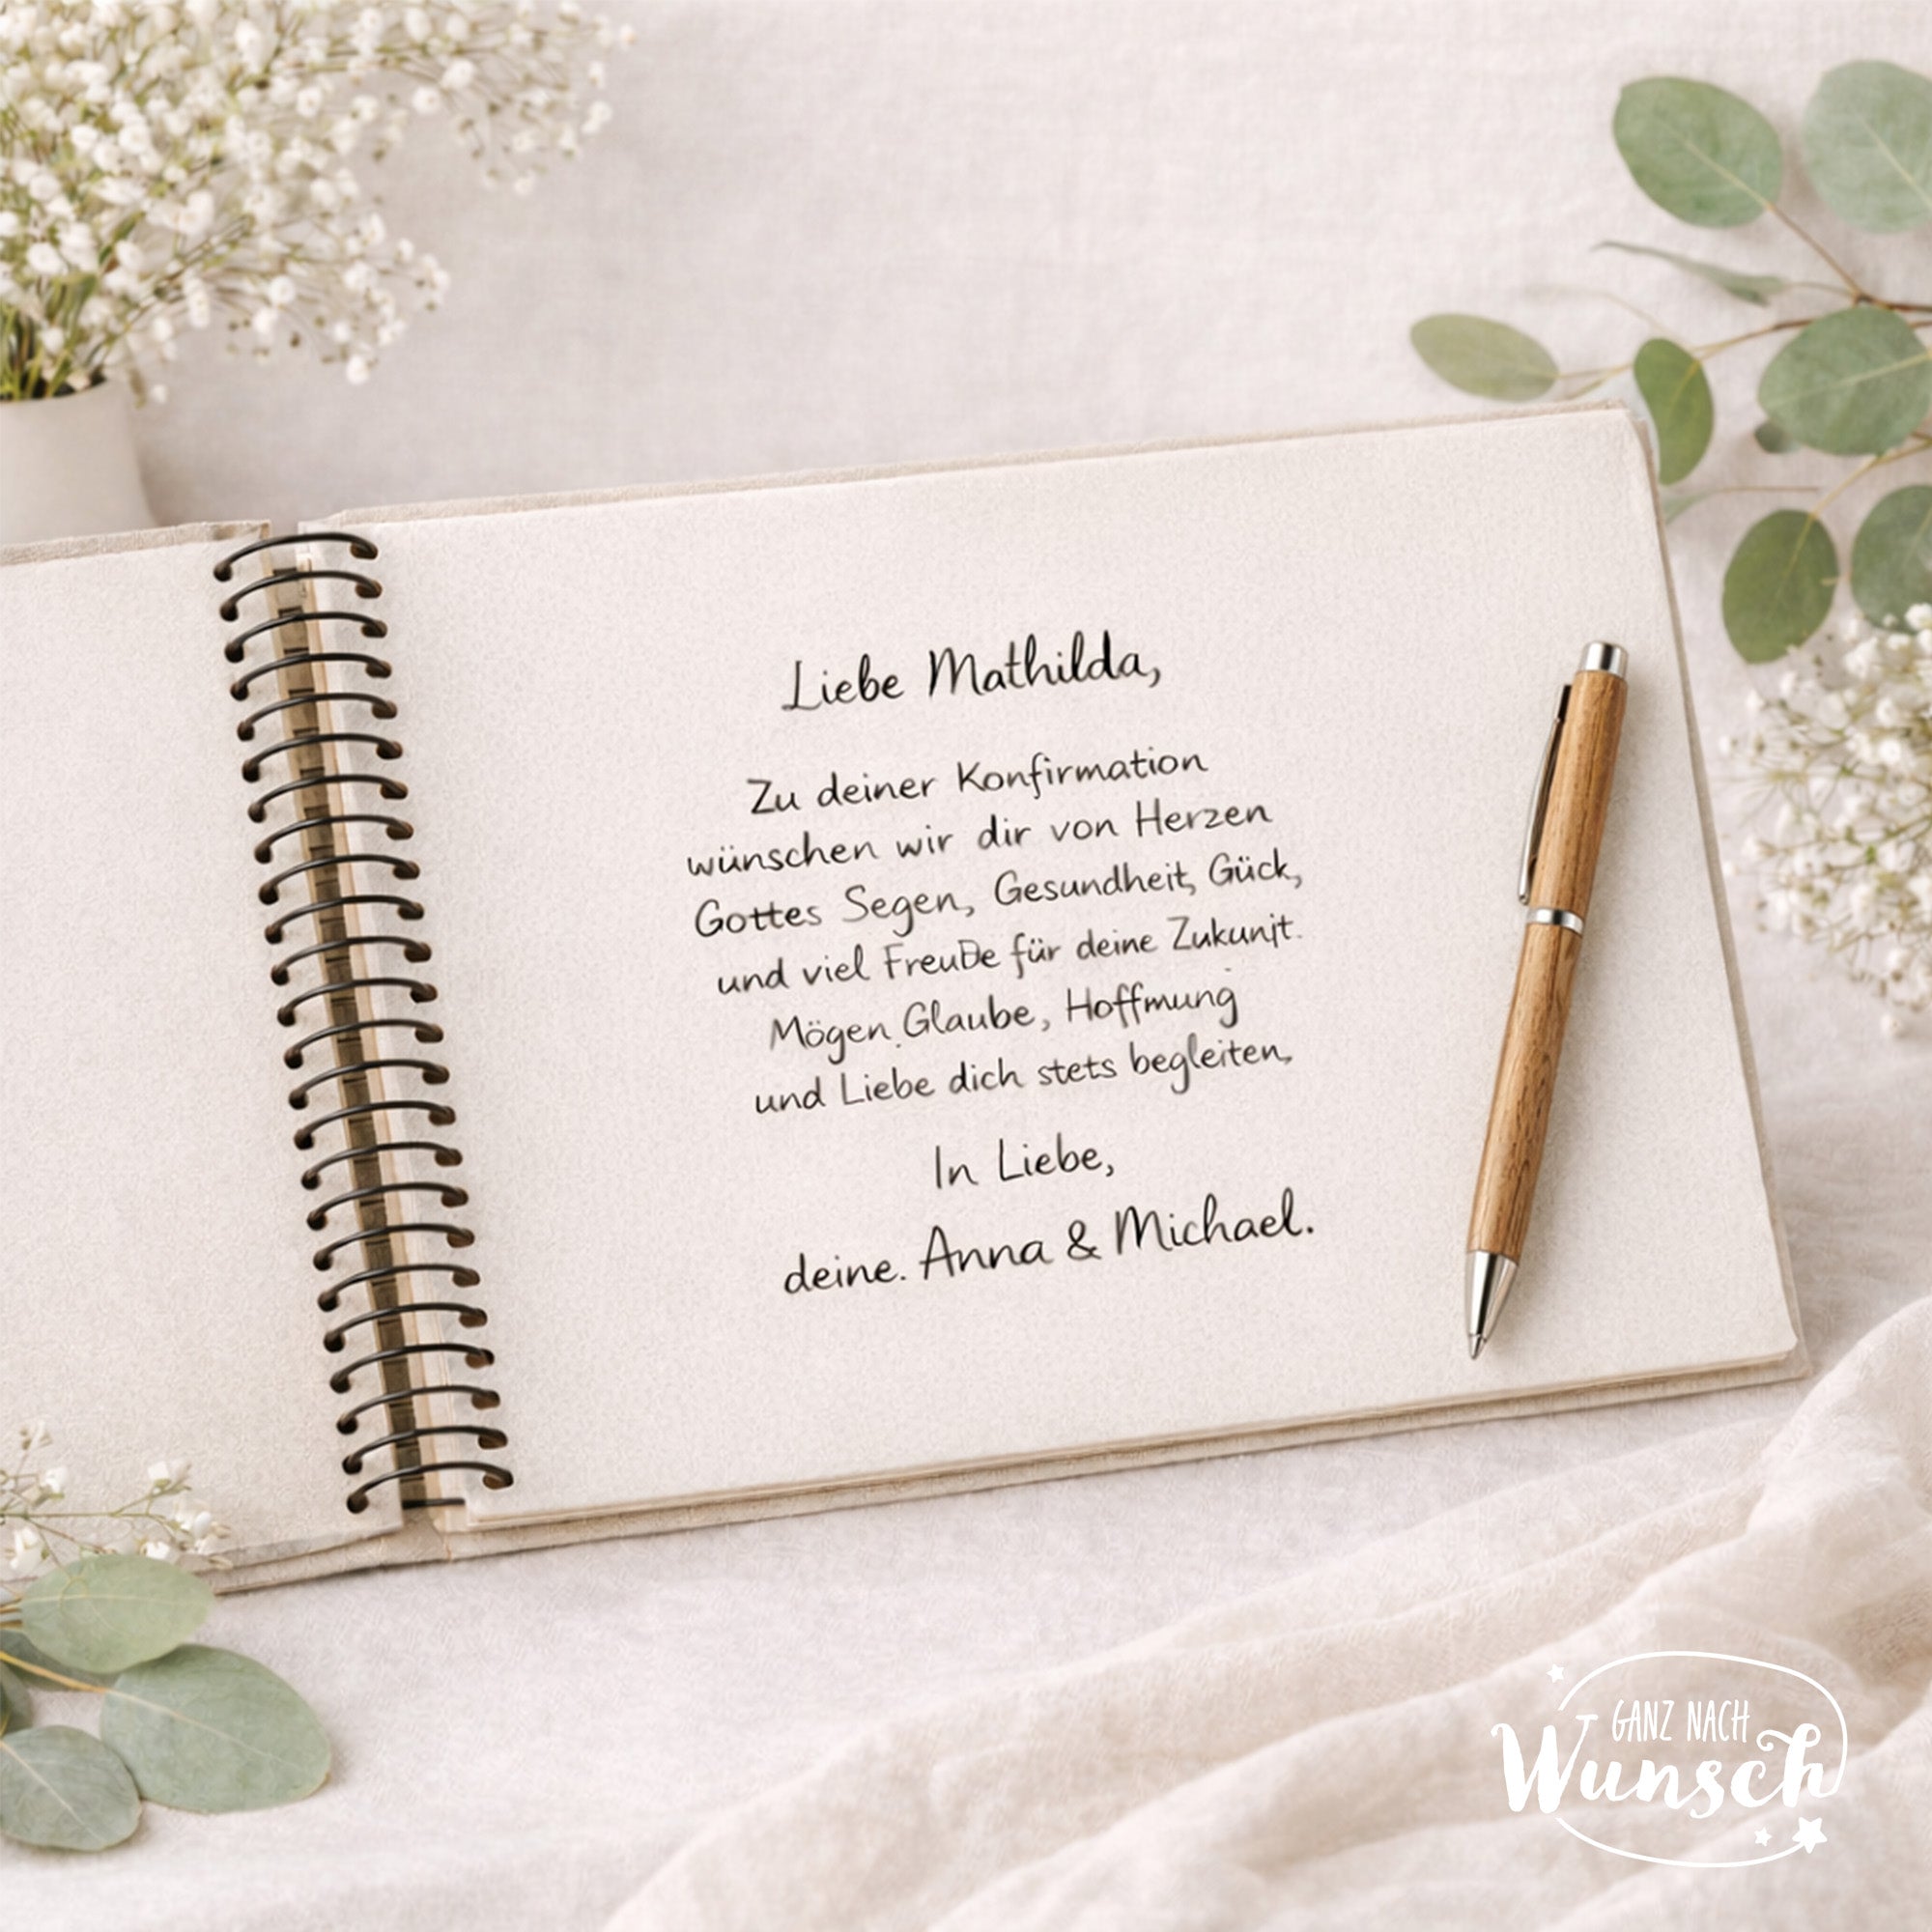 Liebe Mathilda,
Zu deiner Konfirmation
wünschen wir dir von Herzen
Gottes Segen, Gesundheit, Gück,
und viel FreuDe für deine Zukunjt.
Mögen Glaube, Hoffmung
und Liebe dich stets begleiten,
In Liebe,
deine. Anna & Michael.
GANZ NACH
Wunsch